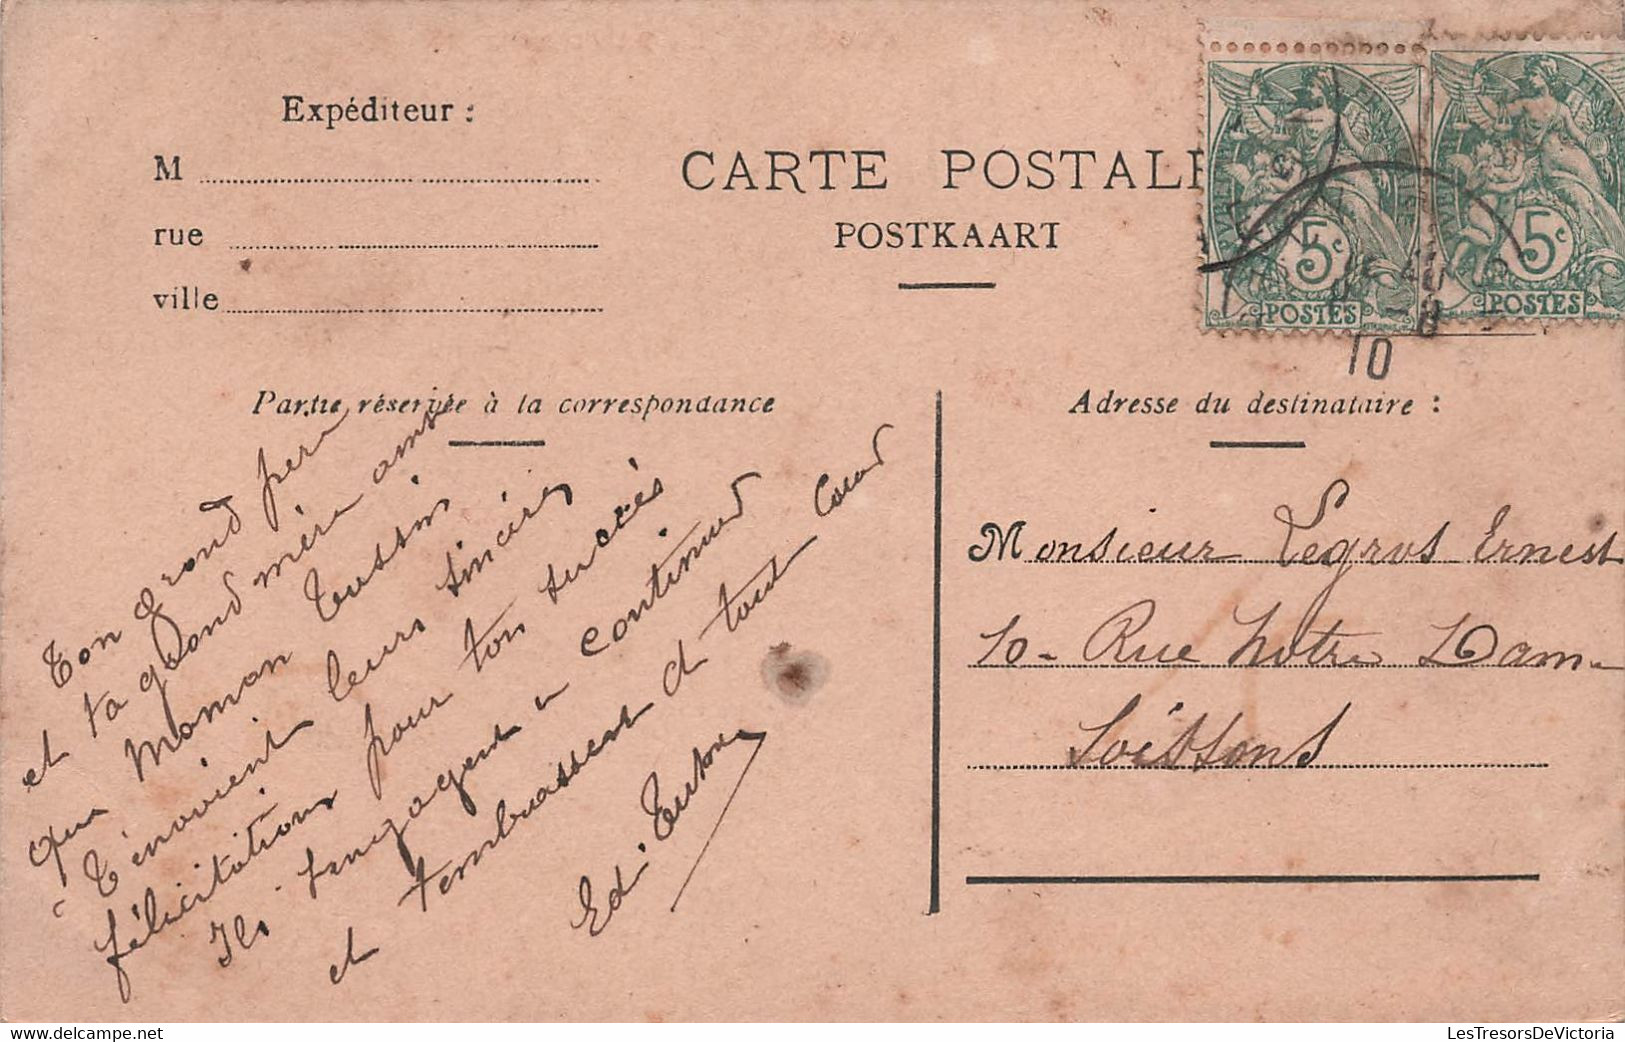 Expéditeur :
M
rue
ville
CARTE POSTALE
POSTKAART
5c
POSTES
5c
POSTES
10
Partie réservée à la correspondance
Adresse du destinataire :
Ton grand père
et ta grand mère ainsi
que Maman
t'envoient leurs sincères
félicitations pour ton succès
Ils t'engagent a continuer
et t'embrassent de tout cœur
Monsieur Legros Ernest
10 - Rue Notre Dam-
Soissons
LesTresorsDeVictoria